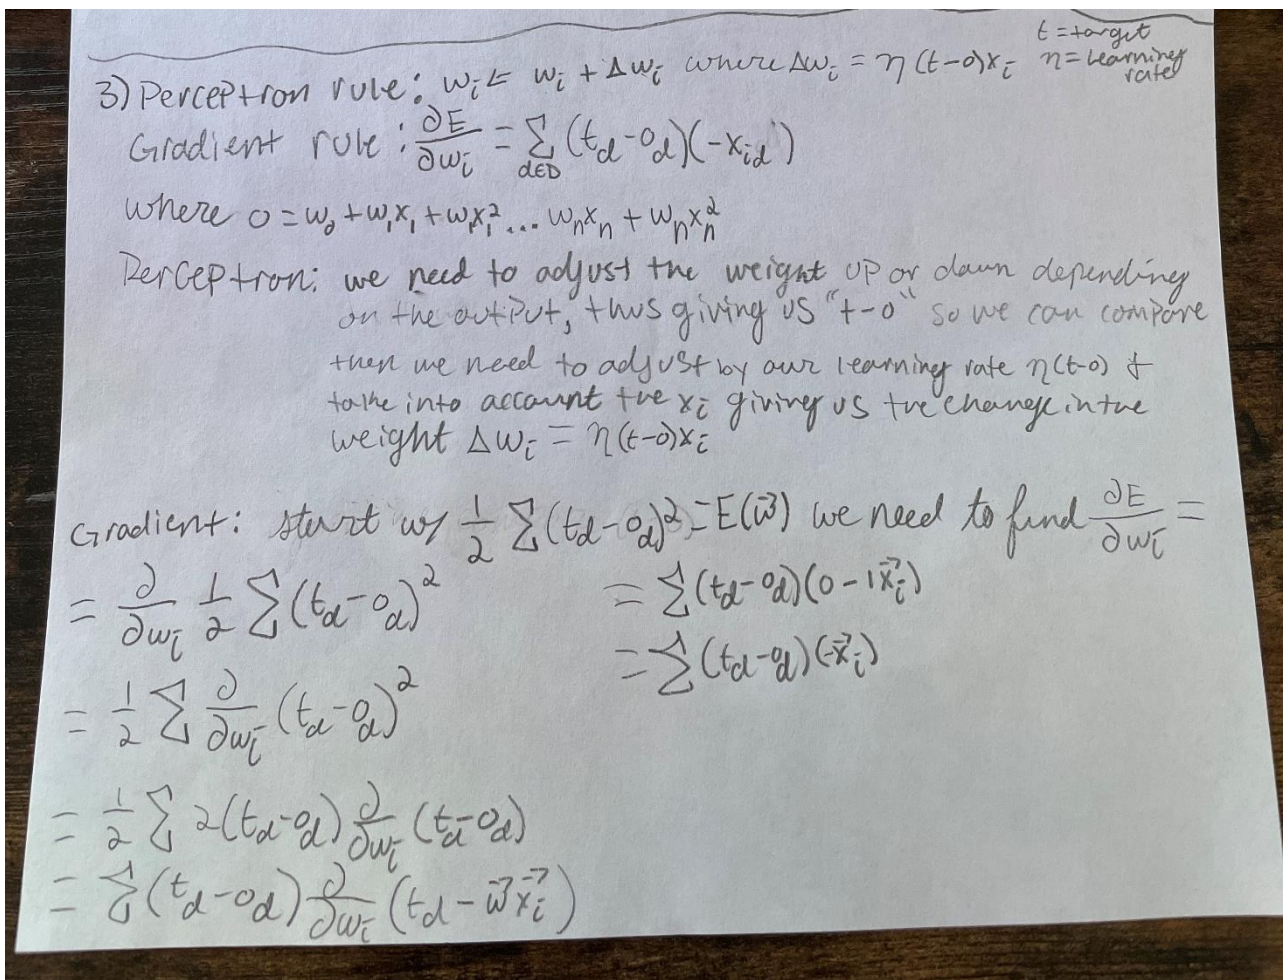 3) Perceptron rule: wᵢ ← wᵢ + Δwᵢ where Δwᵢ = η(t-o)xᵢ
t = target
η = learning rate
Gradient rule: ∂E/∂wᵢ = Σ_{d∈D} (t_d - o_d)(-x_{id})
where o = w₀ + w₁x₁ + w₁x₁² ... wₙxₙ + wₙxₙ²
Perceptron: we need to adjust the weight up or down depending
on the output, thus giving us "t-o" so we can compare
then we need to adjust by our learning rate η(t-o) &
take into account the xᵢ giving us the change in the
weight Δwᵢ = η(t-o)xᵢ
Gradient: start w/ 1/2 Σ(t_d - o_d)² = E(w⃗) we need to find ∂E/∂wᵢ =
= ∂/∂wᵢ 1/2 Σ(t_d - o_d)²
= 1/2 Σ ∂/∂wᵢ (t_d - o_d)²
= 1/2 Σ 2(t_d - o_d) ∂/∂wᵢ (t_d - o_d)
= Σ(t_d - o_d) ∂/∂wᵢ (t_d - w⃗x⃗ᵢ)
= Σ(t_d - o_d)(0 - 1x⃗ᵢ)
= Σ(t_d - o_d)(-x⃗ᵢ)